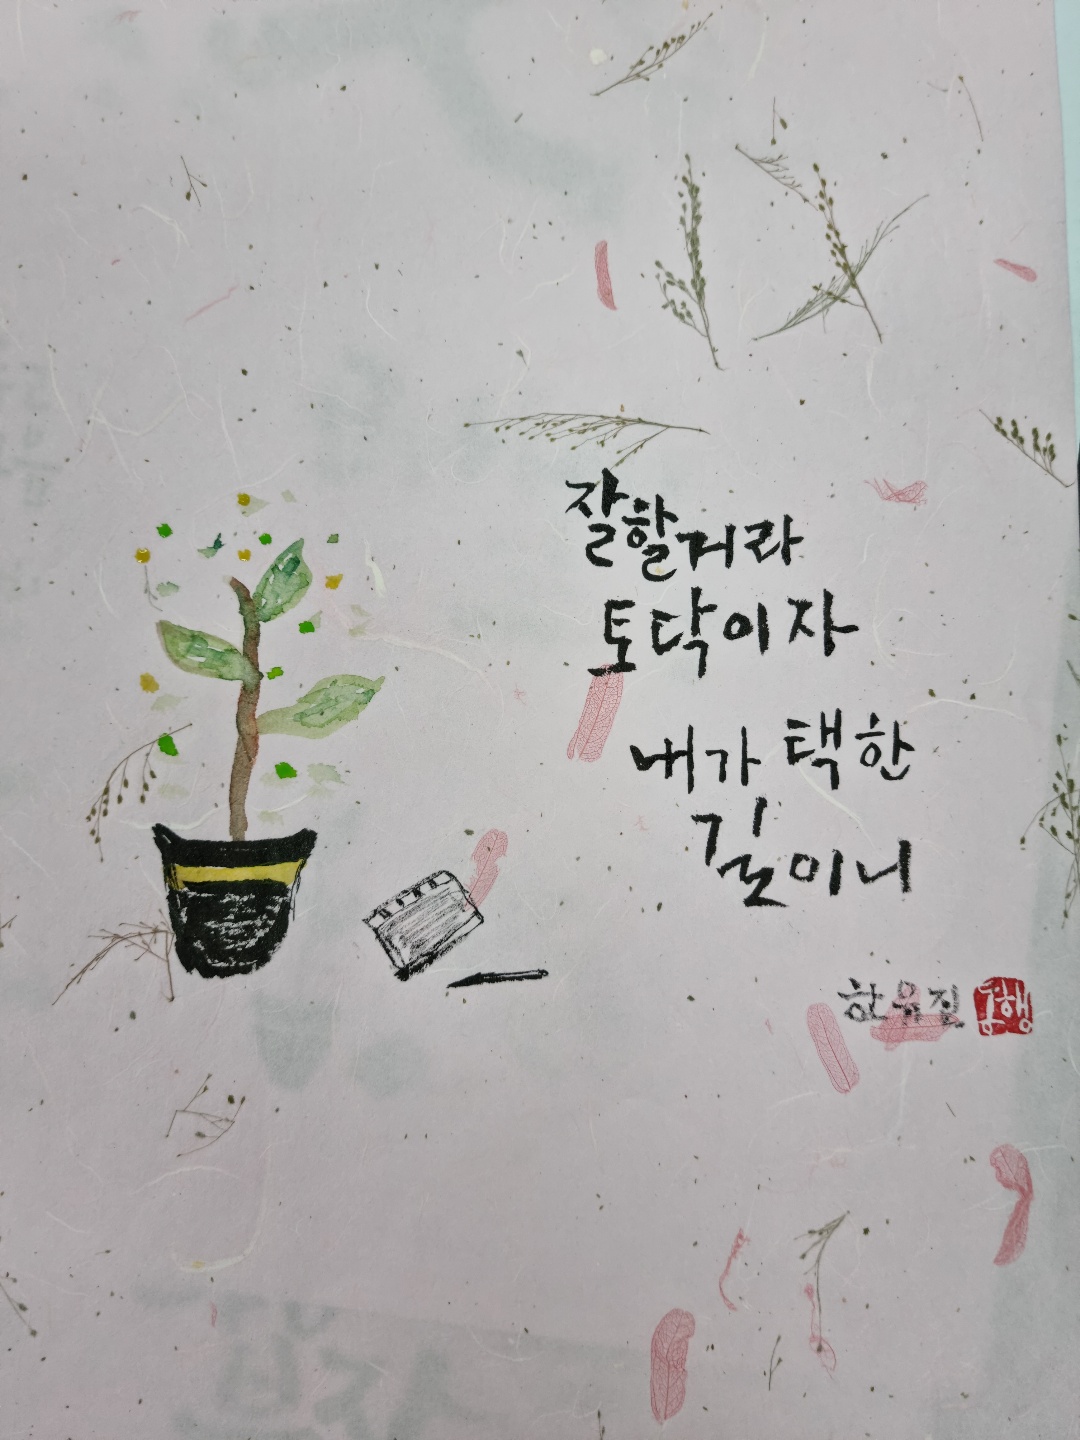 잘할거라
토닥이자
내가 택한
길이니
한유진